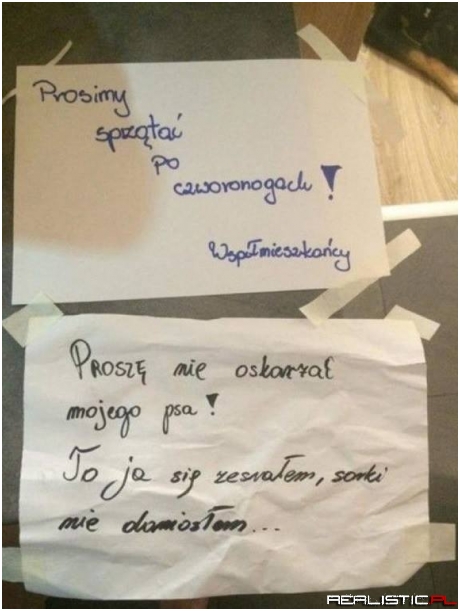 Prosimy
sprzątać
po
czworonogach!
Współmieszkańcy
PROSZĘ nie oskarżać
mojego psa!
To ja się zesrałem, sorki
nie doniosłem...
REALISTIC.PL